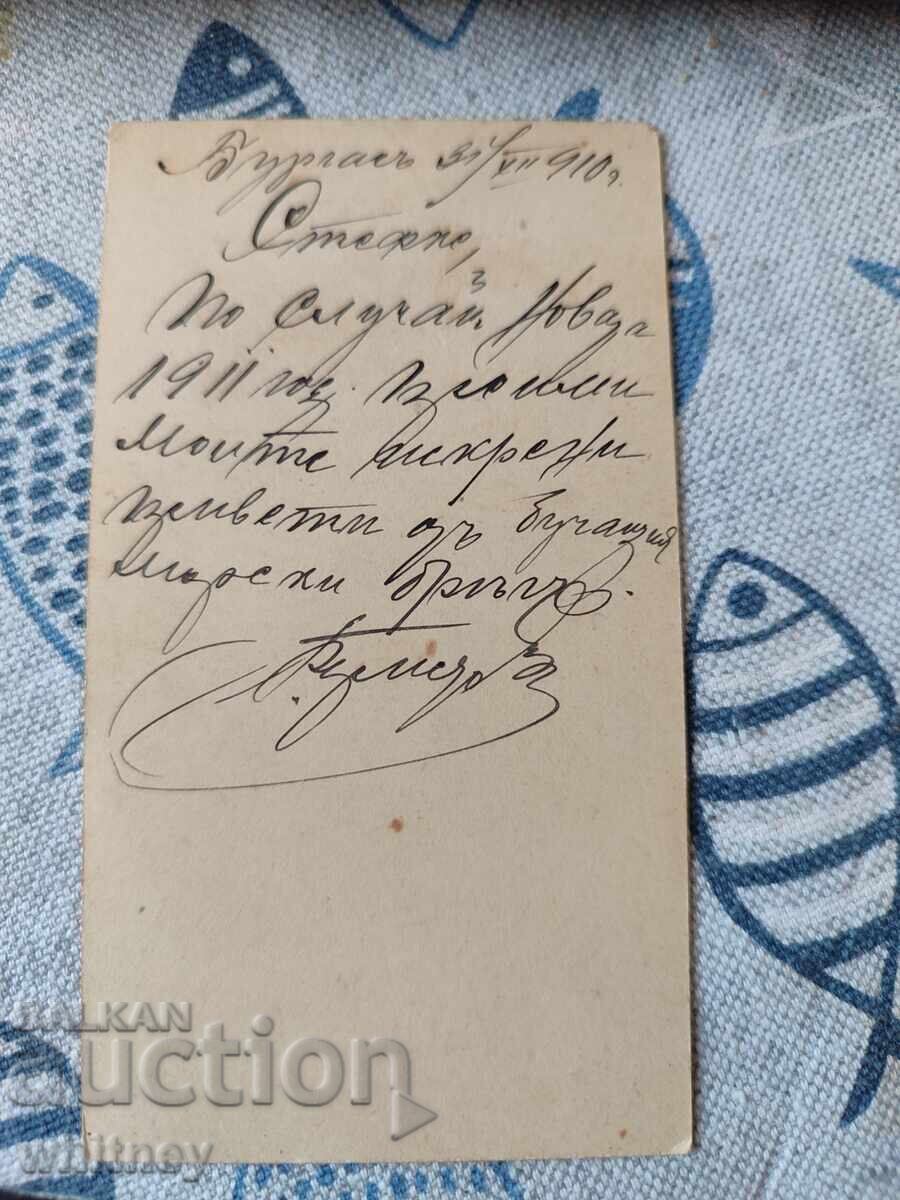 Бургасъ 31/XII 910 г.
Стефке,
По случай Новата
1911 год. приеми
моите искрени
приветы отъ бучащия
морски брѣгъ.
BALKAN
auction
whitney